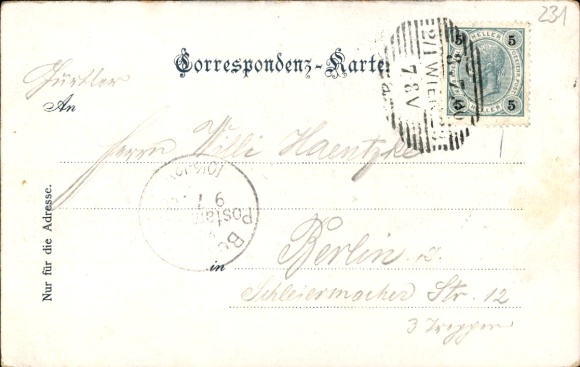 231
Correspondenz-Karte
An
Herrn Willi Haentzke
in Berlin
Schleiermacher Str. 12
3 Treppen
Nur für die Adresse.
5 HELLER 5
5 HELLER 5
WIEN
7 8 V
Be
Posta
9